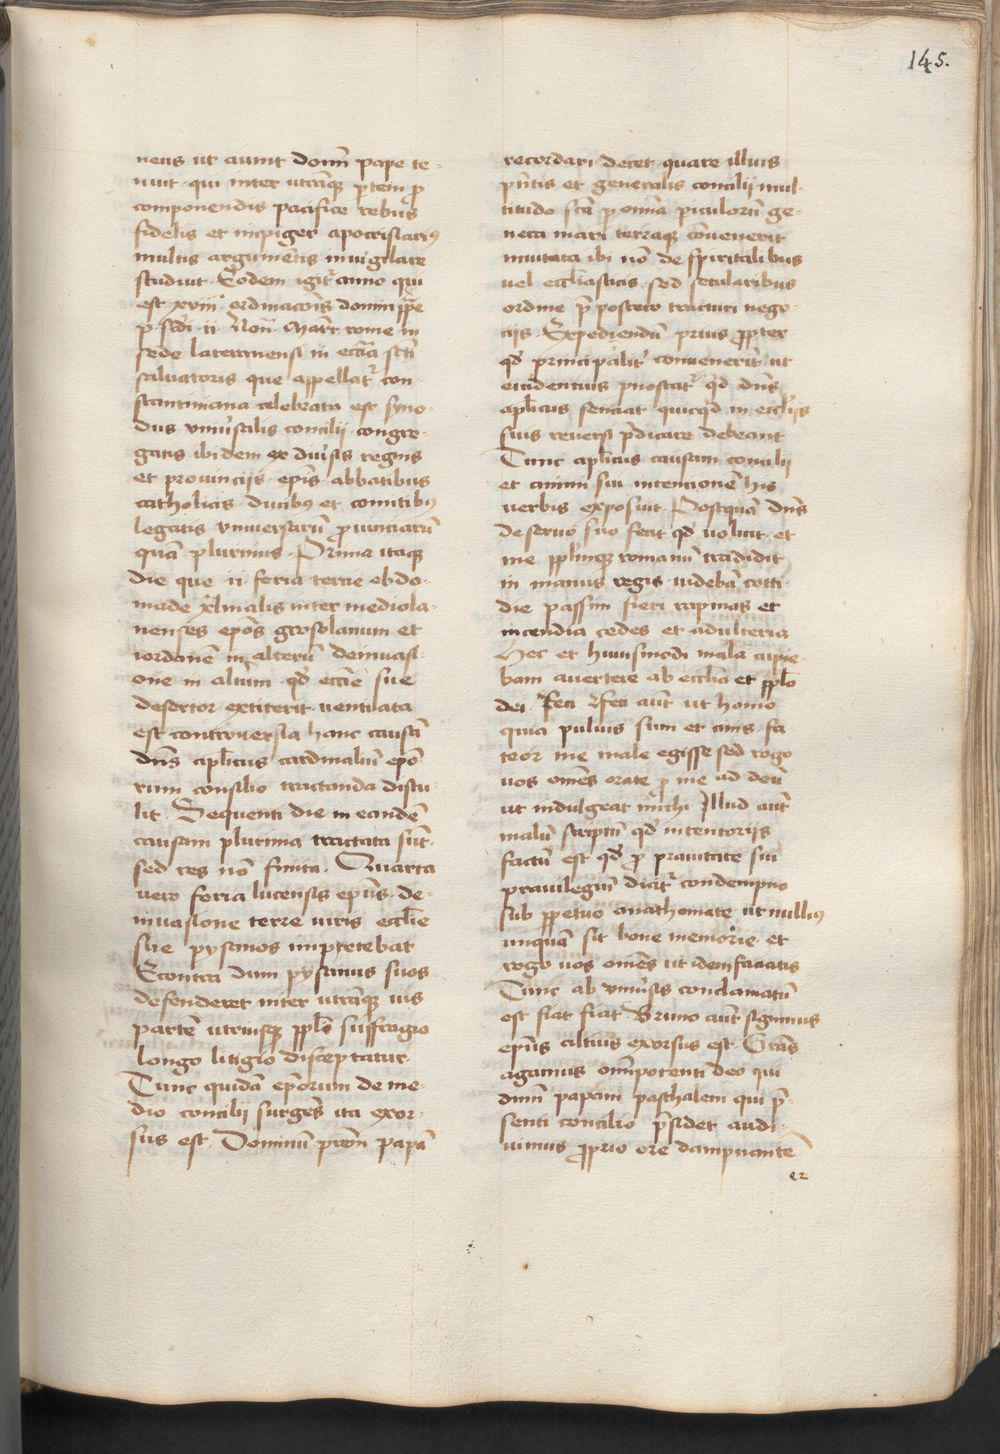 145.
neus ut aiunt domni pape te-
nuit · qui inter utramq̄ ꝑtem ꝓ
componendis pacifice rebus
fidelis et impiger apocrisiariꝰ
multis argumētis inuigilare
studuit · Eodem igit᷑ anno qui
est xviii° ordinacōis domni ppē
p · scdi · ii Noñ Marc̄ rome in
sede lateranensi in eccl̄ia scti
saluatoris que appellat᷑ con-
stantiniana celebrata est syno-
dus vniūsalis concilii congre-
gatis ibidem ex diūsis regnis
et prouincijs · ep̄is abbatibus
catholicis · ducibꝰ et comitibꝰ
legatis vniuersarū ꝓuinciarū
quā plurimis · Prima itaq̄
die que ii feria tercie ebdo-
made xl̄malis inter mediola-
nenses ep̄os grosolanum et
iordanē in alterū deinuasi-
one in altūm · qd̄ eccīe sue
desertor extiterit uentilata
est controuersia hanc causā
dn̄s apl̄icus cardinaliū ep̄o
rum consilio tractanda distu-
lit · Sequenti die in eandē
causam plurima tractata sūt
sed res nō finita · Quarta
uero feria lucensis ep̄us · de-
inuasione terre iuris eccl̄ie
sue pysanos impetebat
Econtra dum pysanus suos
defenderet inter utramq̄ uis
partē utriusq̄ ppl̄o suffragio
longo litigio disceptatur
Tunc quidā ep̄orum de me-
dio concilii surgēs ita exor-
sus est · Dominū pr̄em papā
recordari decet · quare illius
pn̄tis et generalis concilij mul-
titudo sctā ꝑ omīa ꝑiculorū ge-
nera mari terraq̄ conuenerit
mutata ibi nō de spiritalibus
uel eccl̄iasticis · sed secularibus
ordine p̄postero tractari nego-
cijs · Expediendū prius ꝓpter
qd̄ principalit᷑ conuenerit · ut
euidentius pnoscat᷑ qd̄ dn̄s
apl̄icus sentiat quicqd̄ in eccl̄ijs
suis reuersi p̄dicare debeant
Tunc apl̄icus causam concilii
et animi sui intentionē his
uerbis exposuit · Postquā dn̄s
de seruo suo fecit qd̄ uoluit · et
me ppl̄umq̄ romanū tradidit
in manus regis · uidebā cotti-
die passim fieri rapinas et
incendia cedes et adulteria
Hec et huiusmodi mala cupie-
bam auertere ab eccl̄ia et ppl̄o
dei · Feci aūt ut homo
quia puluis sum et cinis fa-
teor me male egisse sed rogo
uos om̄es orate ꝓ me ad deū
ut indulgeat michi Illud aūt
malū scriptū qd̄ in tentoriis
factū est qd̄ ꝓ prauitate sui
prauilegiū dicit᷑ condempno
sub ꝑpetuo anathemate ut nulliꝰ
unquā sit bone memorie · et
rogo uos om̄es ut idem faciatis
Tunc ab vniūsis conclamatū
est fiat fiat Bruno aūt signinus
ep̄us altius exorsus est · Grās
agamus omīpotenti deo qui
dn̄m papam paschalem qui p̄-
senti concilio p̄sidet audi-
uimus ꝓprio ore dampnantē